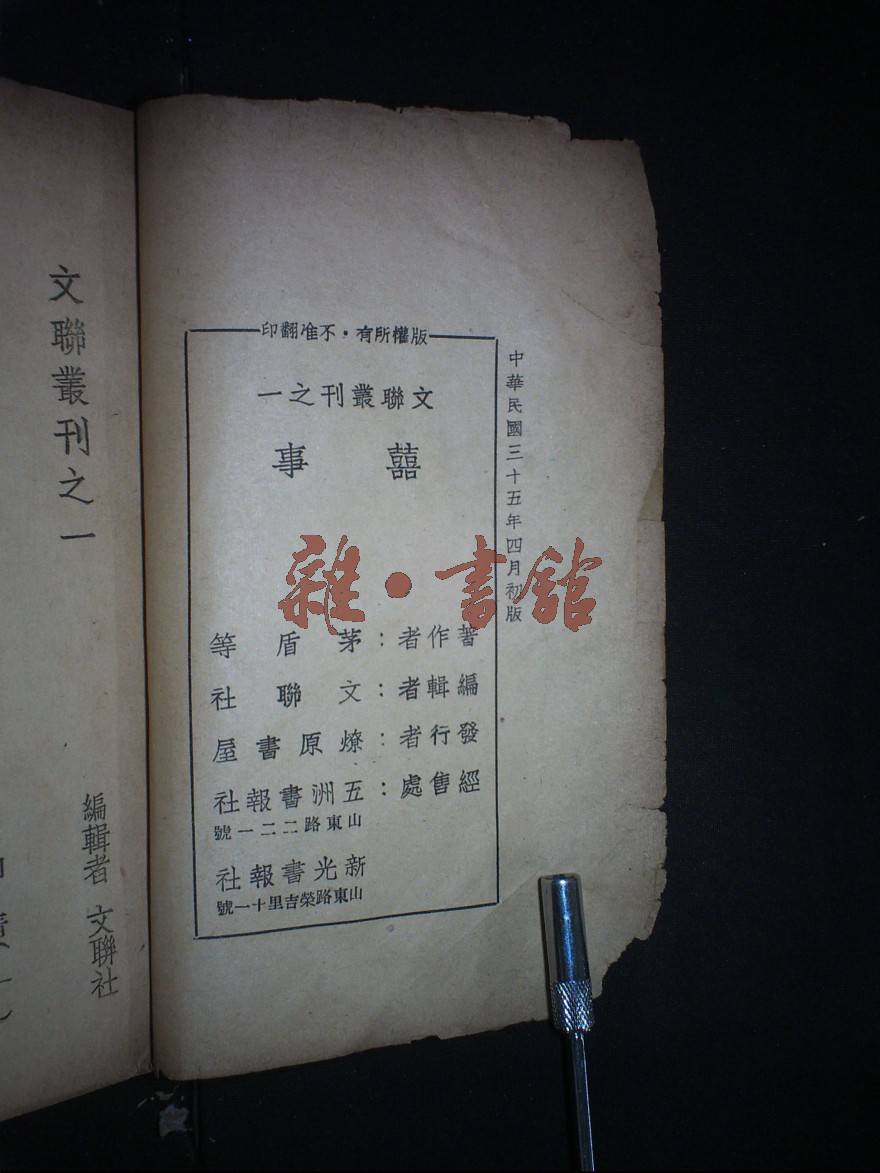 中華民國三十五年四月初版
版權所有·不准翻印
文聯叢刊之一
囍事
著作者：茅盾等
編輯者：文聯社
發行者：燎原書屋
經售處：五洲書報社
山東路二二一號
新光書報社
山東路榮吉里十一號
文聯叢刊之一
編輯者 文聯社
雜·書館